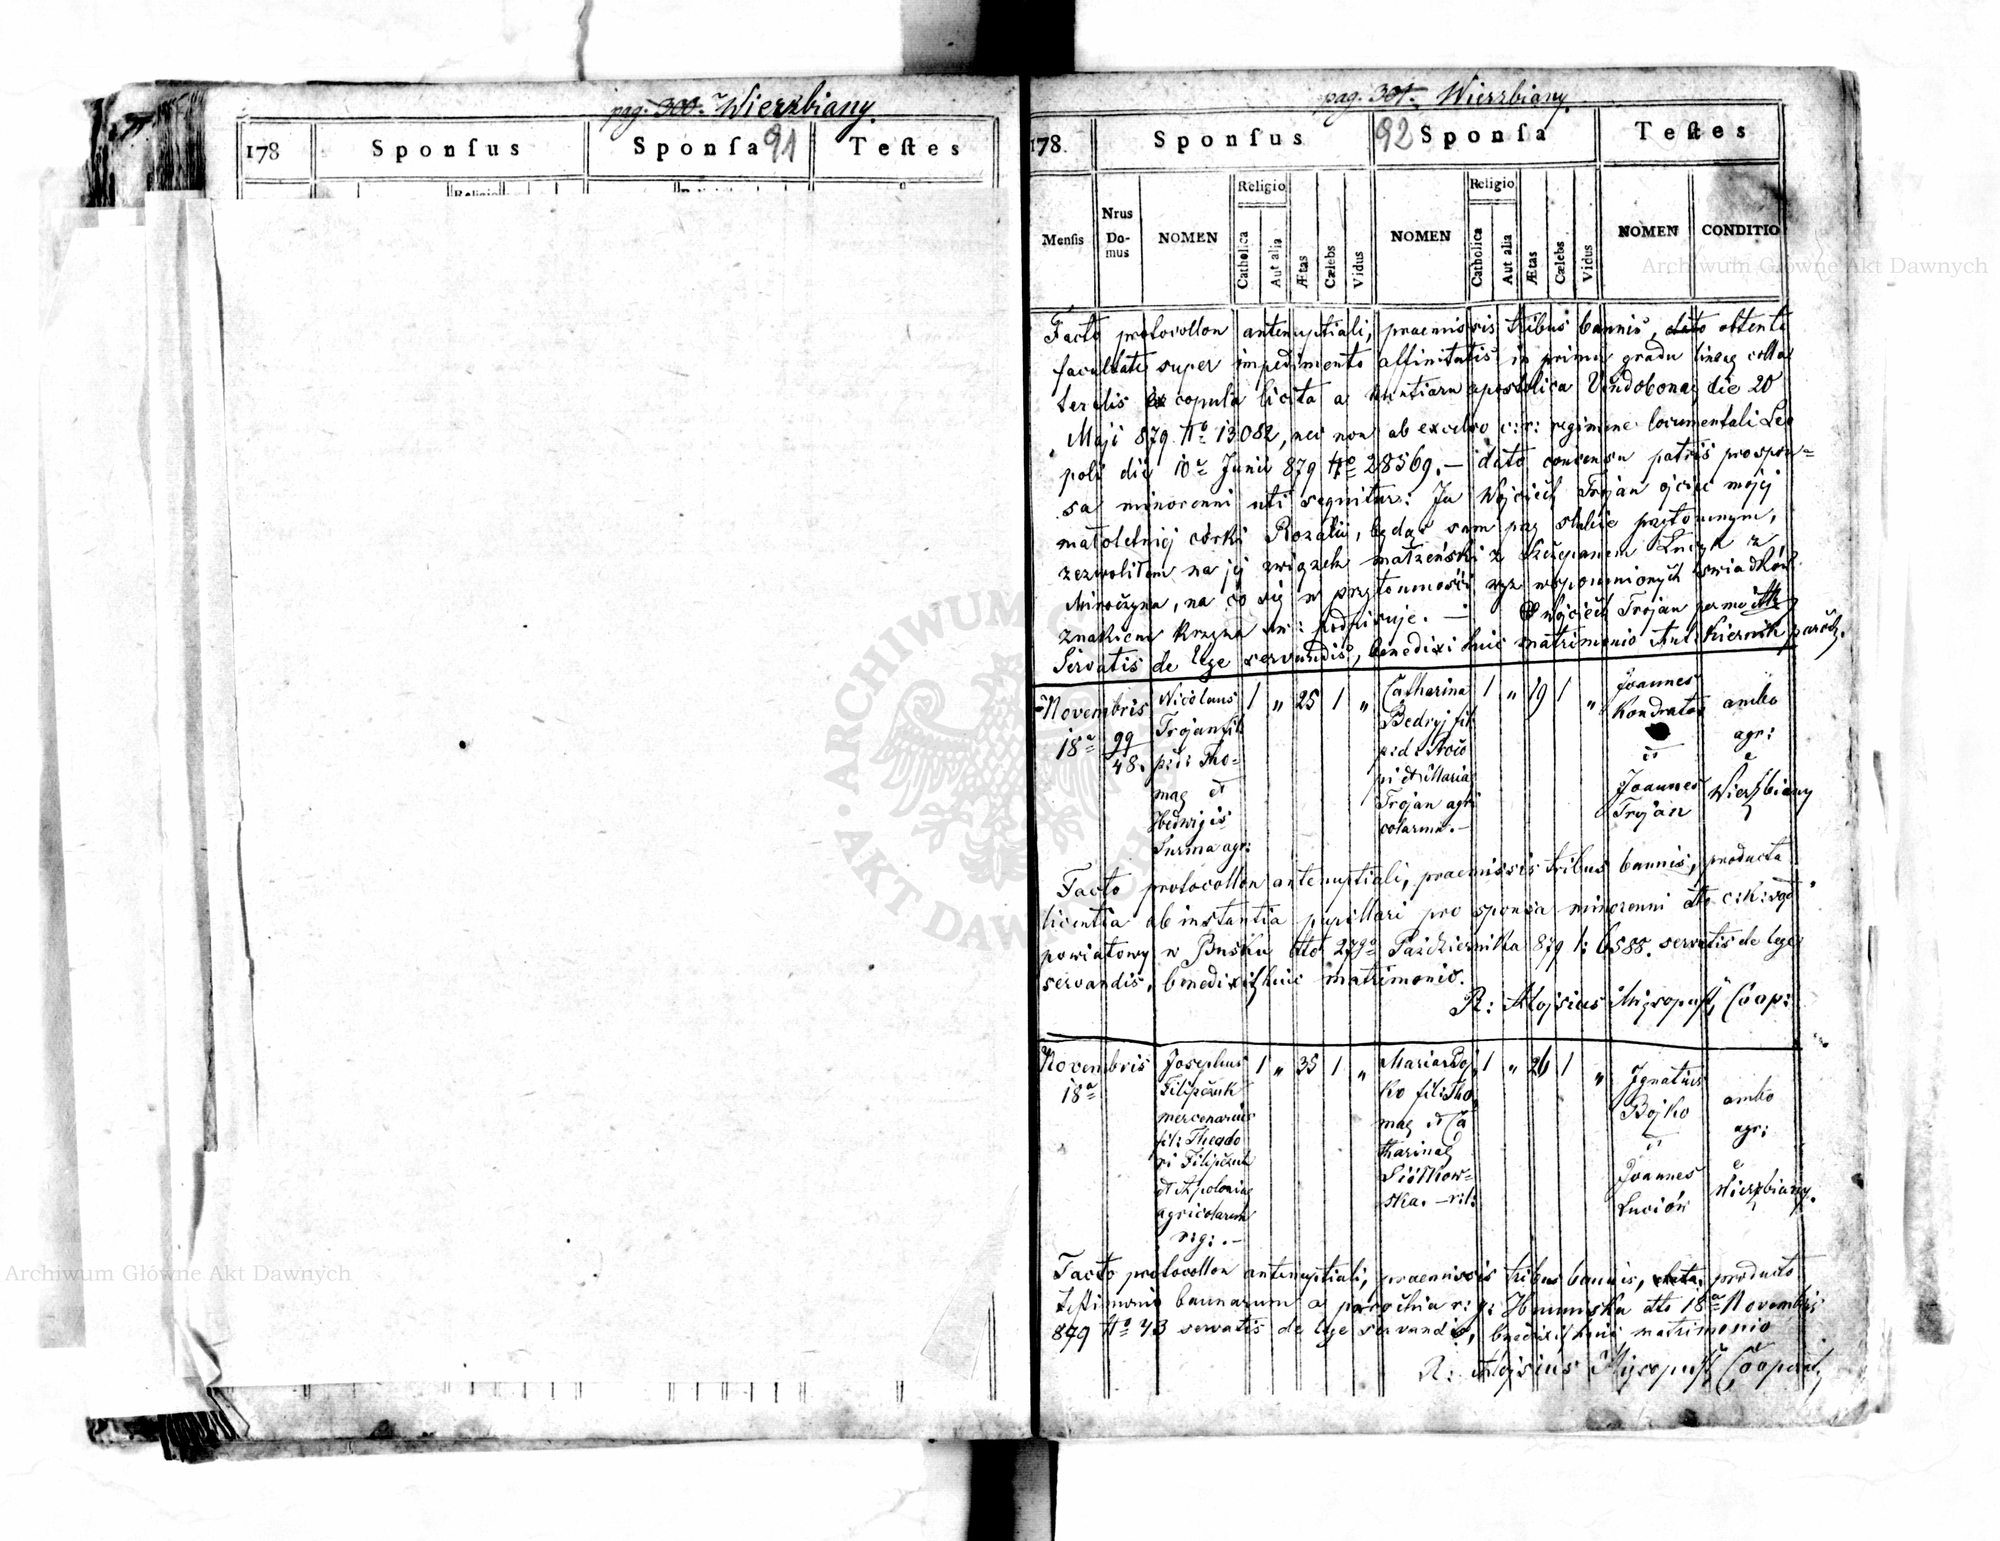 pag. 300. Wierzbiany.
178 Sponſus Sponſa 91 Teſtes
pag. 301. Wierzbiany.
178. Sponſus 92 Sponſa Teſtes
Menſis Nrus Domus NOMEN Religio Catholica Aut alia Ætas Cælebs Vidus NOMEN Religio Catholica Aut alia Ætas Cælebs Vidus NOMEN CONDITIO
Facto protocollon antenuptiali, praemissis tribus bannis, obtenta
facultate super impedimento affinitatis in primo gradu lineae colla
teralis ex copula licita a Nuntiaru apostolica Vindobonae die 20
Maji 879 No 13082, nec non ab excelso c: r: regimine locumentali Leo
poli die 10a Junii 879 No 28569. — dato consensu patris pro spon=
sa minorenni uti sequitur: Ja Wojciech Trojan ojciec mojej
małoletniej córki Rozalii, będąc sam przytomnym,
zezwoliłem na jej związek małżeński z Szczepanem z
na co się w przytomności wyż wspomnionych świadków
znakiem krzyża św: podpisuje. — Wojciech Trojan
Servatis de lege servandis, benedixi huic matrimonio Ant: Kiernik paroch.
Novembris
18a
99
48.
Nicolaus
Trojan fil:
p: d: Tho=
mae et
Hedwigis
Surma agr:
1 „ 25 1 „
Catharina
Bedryj fil:
p: d: Proco
pi et Maria
Trojan agri
colarum. —
1 „ 19 1 „
Joannes
Kondrat
et
Joannes
Trojan
ambo
agr:
e
Wierzbiany
Facto protocollon antenuptiali, praemissis tribus bannis, producta
licentia ab instantia pupillari pro sponsa minorenni dto c: k: sąd
powiatowy w Busku dto 27go Października 879 l: 6588. servatis de lege
servandis, benedixit huic matrimonio.
R: Alojsius Mięsopust, Coop:
Novembris
18a
Josephus
Filipczuk
mercenarius
fil: Theodo
ri Filipczuk
et Apolonia
agricolarum
r: g: . —
1 „ 35 1 „
Maria Boj
ko fil: Tho
mae et Ca
tharinae
Siółkow=
ska. — r: l:
1 „ 26 1 „
Ignatius
Bojko
et
Joannes
Lucióń
ambo
agr:
e
Wierzbiany.
Facto protocollon antenuptiali, praemissis tribus bannis, producto
testimonio bannorum a parochia r: g: Humniska dto 18a Novembris
879 No 43 servatis de lege servandis, benedixit huic matrimonio
R: Alojsius Mięsopust Cooperat.
Archiwum Główne Akt Dawnych
Archiwum Główne Akt Dawnych